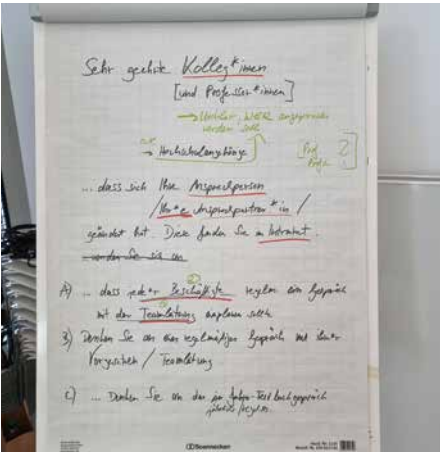 Sehr geehrte Kolleg*innen
[und Professor*innen]
→ Unklar, WER angesprochen
werden soll
→ Hochschulangehörige
[Prof.
Prof.in ?]
... dass sich Ihre Ansprechperson
/ Ihr*e Ansprechpartner*in /
geändert hat. Diese finden Sie im Intranet.
A) ... dass jede*r Beschäftigte regelm. ein Gespräch
mit der Teamleitung einplanen sollte.
B) Denken Sie an Ihr regelmäßiges Gespräch mit Ihrer
Vorgesetzten / Teamleitung
C) ... Denken Sie an das
Soennecken